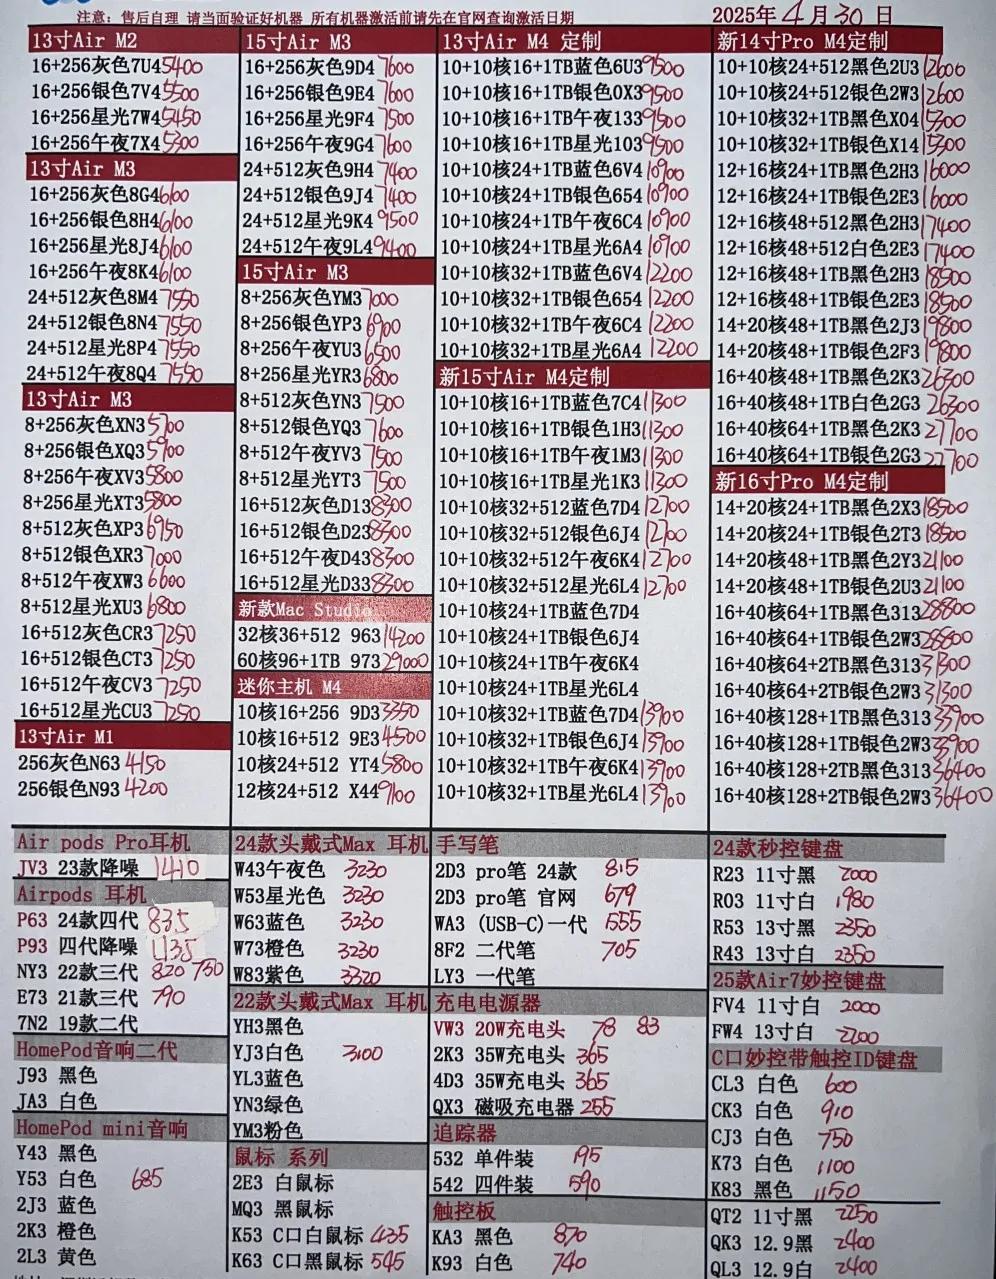 注意：售后自理 请当面验证好机器 所有机器激活前请先在官网查询激活日期
2025年4月30日
13寸Air M2
16+256灰色7U4 5400
16+256银色7V4 5500
16+256星光7W4 5450
16+256午夜7X4 5300
13寸Air M3
16+256灰色8G4 6100
16+256银色8H4 6100
16+256星光8J4 6100
16+256午夜8K4 6100
24+512灰色8M4 7550
24+512银色8N4 7550
24+512星光8P4 7550
24+512午夜8Q4 7550
13寸Air M3
8+256灰色XN3 5700
8+256银色XQ3 5900
8+256午夜XV3 5800
8+256星光XT3 5800
8+512灰色XP3 6950
8+512银色XR3 7000
8+512午夜XW3 6600
8+512星光XU3 6800
16+512灰色CR3 7250
16+512银色CT3 7250
16+512午夜CV3 7250
16+512星光CU3 7250
13寸Air M1
256灰色N63 4150
256银色N93 4200
15寸Air M3
16+256灰色9D4 7600
16+256银色9E4 7600
16+256星光9F4 7500
16+256午夜9G4 7600
24+512灰色9H4 7400
24+512银色9J4 7400
24+512星光9K4 9500
24+512午夜9L4 9400
15寸Air M3
8+256灰色YM3 7000
8+256银色YP3 6900
8+256午夜YU3 6500
8+256星光YR3 6800
8+512灰色YN3 7500
8+512银色YQ3 7600
8+512午夜YV3 7500
8+512星光YT3 7500
16+512灰色D13 8300
16+512银色D23 8300
16+512午夜D43 8300
16+512星光D33 8300
新款Mac Studio
32核36+512 963 14200
60核96+1TB 973 29000
迷你主机 M4
10核16+256 9D3 3350
10核16+512 9E3 4500
10核24+512 YT4 5800
12核24+512 X44 9100
13寸Air M4 定制
10+10核16+1TB蓝色6U3 9500
10+10核16+1TB银色0X3 9500
10+10核16+1TB午夜133 9500
10+10核16+1TB星光103 9500
10+10核24+1TB蓝色6V4 10900
10+10核24+1TB银色654 10900
10+10核24+1TB午夜6C4 10900
10+10核24+1TB星光6A4 10900
10+10核32+1TB蓝色6V4 12200
10+10核32+1TB银色654 12200
10+10核32+1TB午夜6C4 12200
10+10核32+1TB星光6A4 12200
新15寸Air M4定制
10+10核16+1TB蓝色7C4 11300
10+10核16+1TB银色1H3 11300
10+10核16+1TB午夜1M3 11300
10+10核16+1TB星光1K3 11300
10+10核32+512蓝色7D4 12700
10+10核32+512银色6J4 12700
10+10核32+512午夜6K4 12700
10+10核32+512星光6L4 12700
10+10核24+1TB蓝色7D4
10+10核24+1TB银色6J4
10+10核24+1TB午夜6K4
10+10核24+1TB星光6L4
10+10核32+1TB蓝色7D4 13900
10+10核32+1TB银色6J4 13900
10+10核32+1TB午夜6K4 13900
10+10核32+1TB星光6L4 13900
新14寸Pro M4定制
10+10核24+512黑色2U3 12600
10+10核24+512银色2W3 12600
10+10核32+1TB黑色X04 15300
10+10核32+1TB银色X14 15300
12+16核24+1TB黑色2H3 16000
12+16核24+1TB银色2E3 16000
12+16核48+512黑色2H3 17400
12+16核48+512白色2E3 17400
12+16核48+1TB黑色2H3 18500
12+16核48+1TB银色2E3 18500
14+20核48+1TB黑色2J3 19800
14+20核48+1TB银色2F3 19800
16+40核48+1TB黑色2K3 26300
16+40核48+1TB白色2G3 26300
16+40核64+1TB黑色2K3 27700
16+40核64+1TB银色2G3 27700
新16寸Pro M4定制
14+20核24+1TB黑色2X3 18500
14+20核24+1TB银色2T3 18500
14+20核48+1TB黑色2Y3 21100
14+20核48+1TB银色2U3 21100
16+40核64+1TB黑色313 28800
16+40核64+1TB银色2W3 28800
16+40核64+2TB黑色313 31300
16+40核64+2TB银色2W3 31300
16+40核128+1TB黑色313 33900
16+40核128+1TB银色2W3 33900
16+40核128+2TB黑色313 36400
16+40核128+2TB银色2W3 36400
Air pods Pro耳机
JV3 23款降噪 1410
Airpods 耳机
P63 24款四代 835
P93 四代降噪 1135
NY3 22款三代 820 750
E73 21款三代 790
7N2 19款二代
HomePod音响二代
J93 黑色
JA3 白色
HomePod mini音响
Y43 黑色
Y53 白色 685
2J3 蓝色
2K3 橙色
2L3 黄色
24款头戴式Max 耳机
W43午夜色 3230
W53星光色 3230
W63蓝色 3230
W73橙色 3230
W83紫色 3320
22款头戴式Max 耳机
YH3黑色
YJ3白色 3100
YL3蓝色
YN3绿色
YM3粉色
鼠标 系列
2E3 白鼠标
MQ3 黑鼠标
K53 C口白鼠标 435
K63 C口黑鼠标 545
手写笔
2D3 pro笔 24款 815
2D3 pro笔 官网 679
WA3 (USB-C)一代 555
8F2 二代笔 705
LY3 一代笔
充电电源器
VW3 20W充电头 78 83
2K3 35W充电头 365
4D3 35W充电头 365
QX3 磁吸充电器 255
追踪器
532 单件装 195
542 四件装 590
触控板
KA3 黑色 870
K93 白色 740
24款秒控键盘
R23 11寸黑 2000
R03 11寸白 1980
R53 13寸黑 2350
R43 13寸白 2350
25款Air7妙控键盘
FV4 11寸白 2000
FW4 13寸白 2200
C口妙控带触控ID键盘
CL3 白色 600
CK3 白色 910
CJ3 白色 750
K73 白色 1100
K83 黑色 1150
QT2 11寸黑 2250
QK3 12.9黑 2400
QL3 12.9白 2400